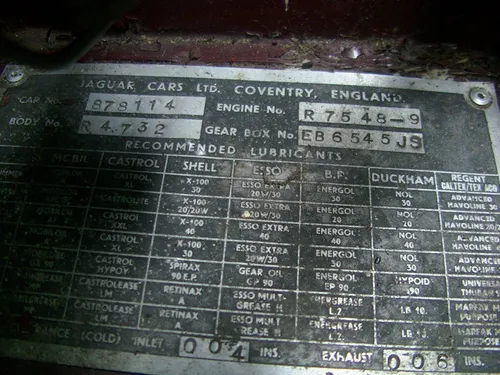 JAGUAR CARS LTD. COVENTRY, ENGLAND.
CAR No. 878114 ENGINE No. R 7548-9
BODY No. R 4732 GEAR BOX No. EB6545JS
RECOMMENDED LUBRICANTS
MOBIL CASTROL SHELL ESSO B.P. DUCKHAM REGENT CALTEX/TEXACO
CASTROL XL X-100 30 ESSO EXTRA 20W/30 ENERGOL 30 NOL 30 ADVANCED HAVOLINE 30
CASTROLITE X-100 20/20W ESSO EXTRA 20W/30 ENERGOL 20 NOL 20 ADVANCED HAVOLINE
CASTROL XXL X-100 40 ESSO EXTRA 40 ENERGOL 40 NOL 40 ADVANCED HAVOLINE
CASTROL XL X-100 30 ESSO EXTRA 20W/30 ENERGOL 30 NOL 30 ADVANCED HAVOLINE
CASTROL HYPOY SPIRAX 90 E.P. GEAR OIL GP 90 ENERGOL EP 90 HYPOID 90
CASTROLEASE LM RETINAX A ESSO MULT- GREASE H ENERGREASE L.2. LB 10.
CASTROLEASE LM RETINAX A ESSO MULT GREASE H ENERGREASE L.2. LB 10.
(COLD) INLET 004 INS. EXHAUST 006 INS.